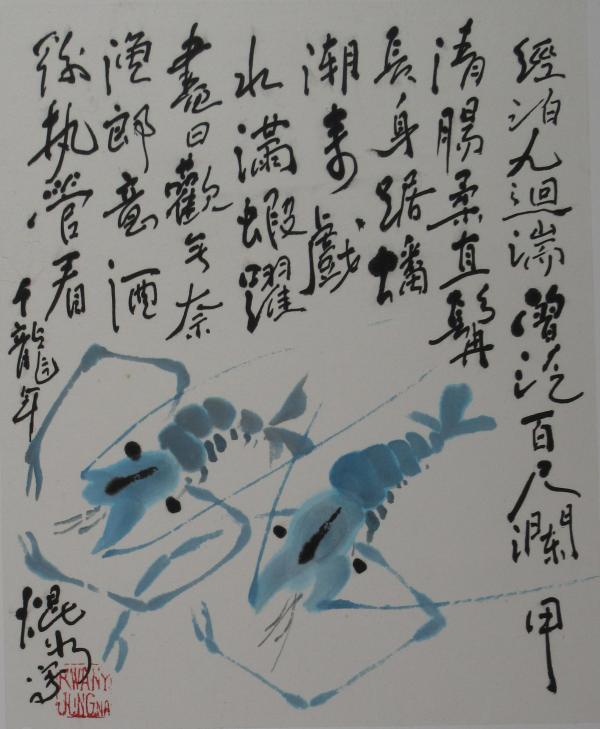 經泊九迴湍曾百尺瀾甲
清腸柔直髯
長身踞蟠
潮來戲
水滿蝦躍
盡日觀無奈
漁郎意酒
後執管看
千龍年
KWANY
JUNG NA